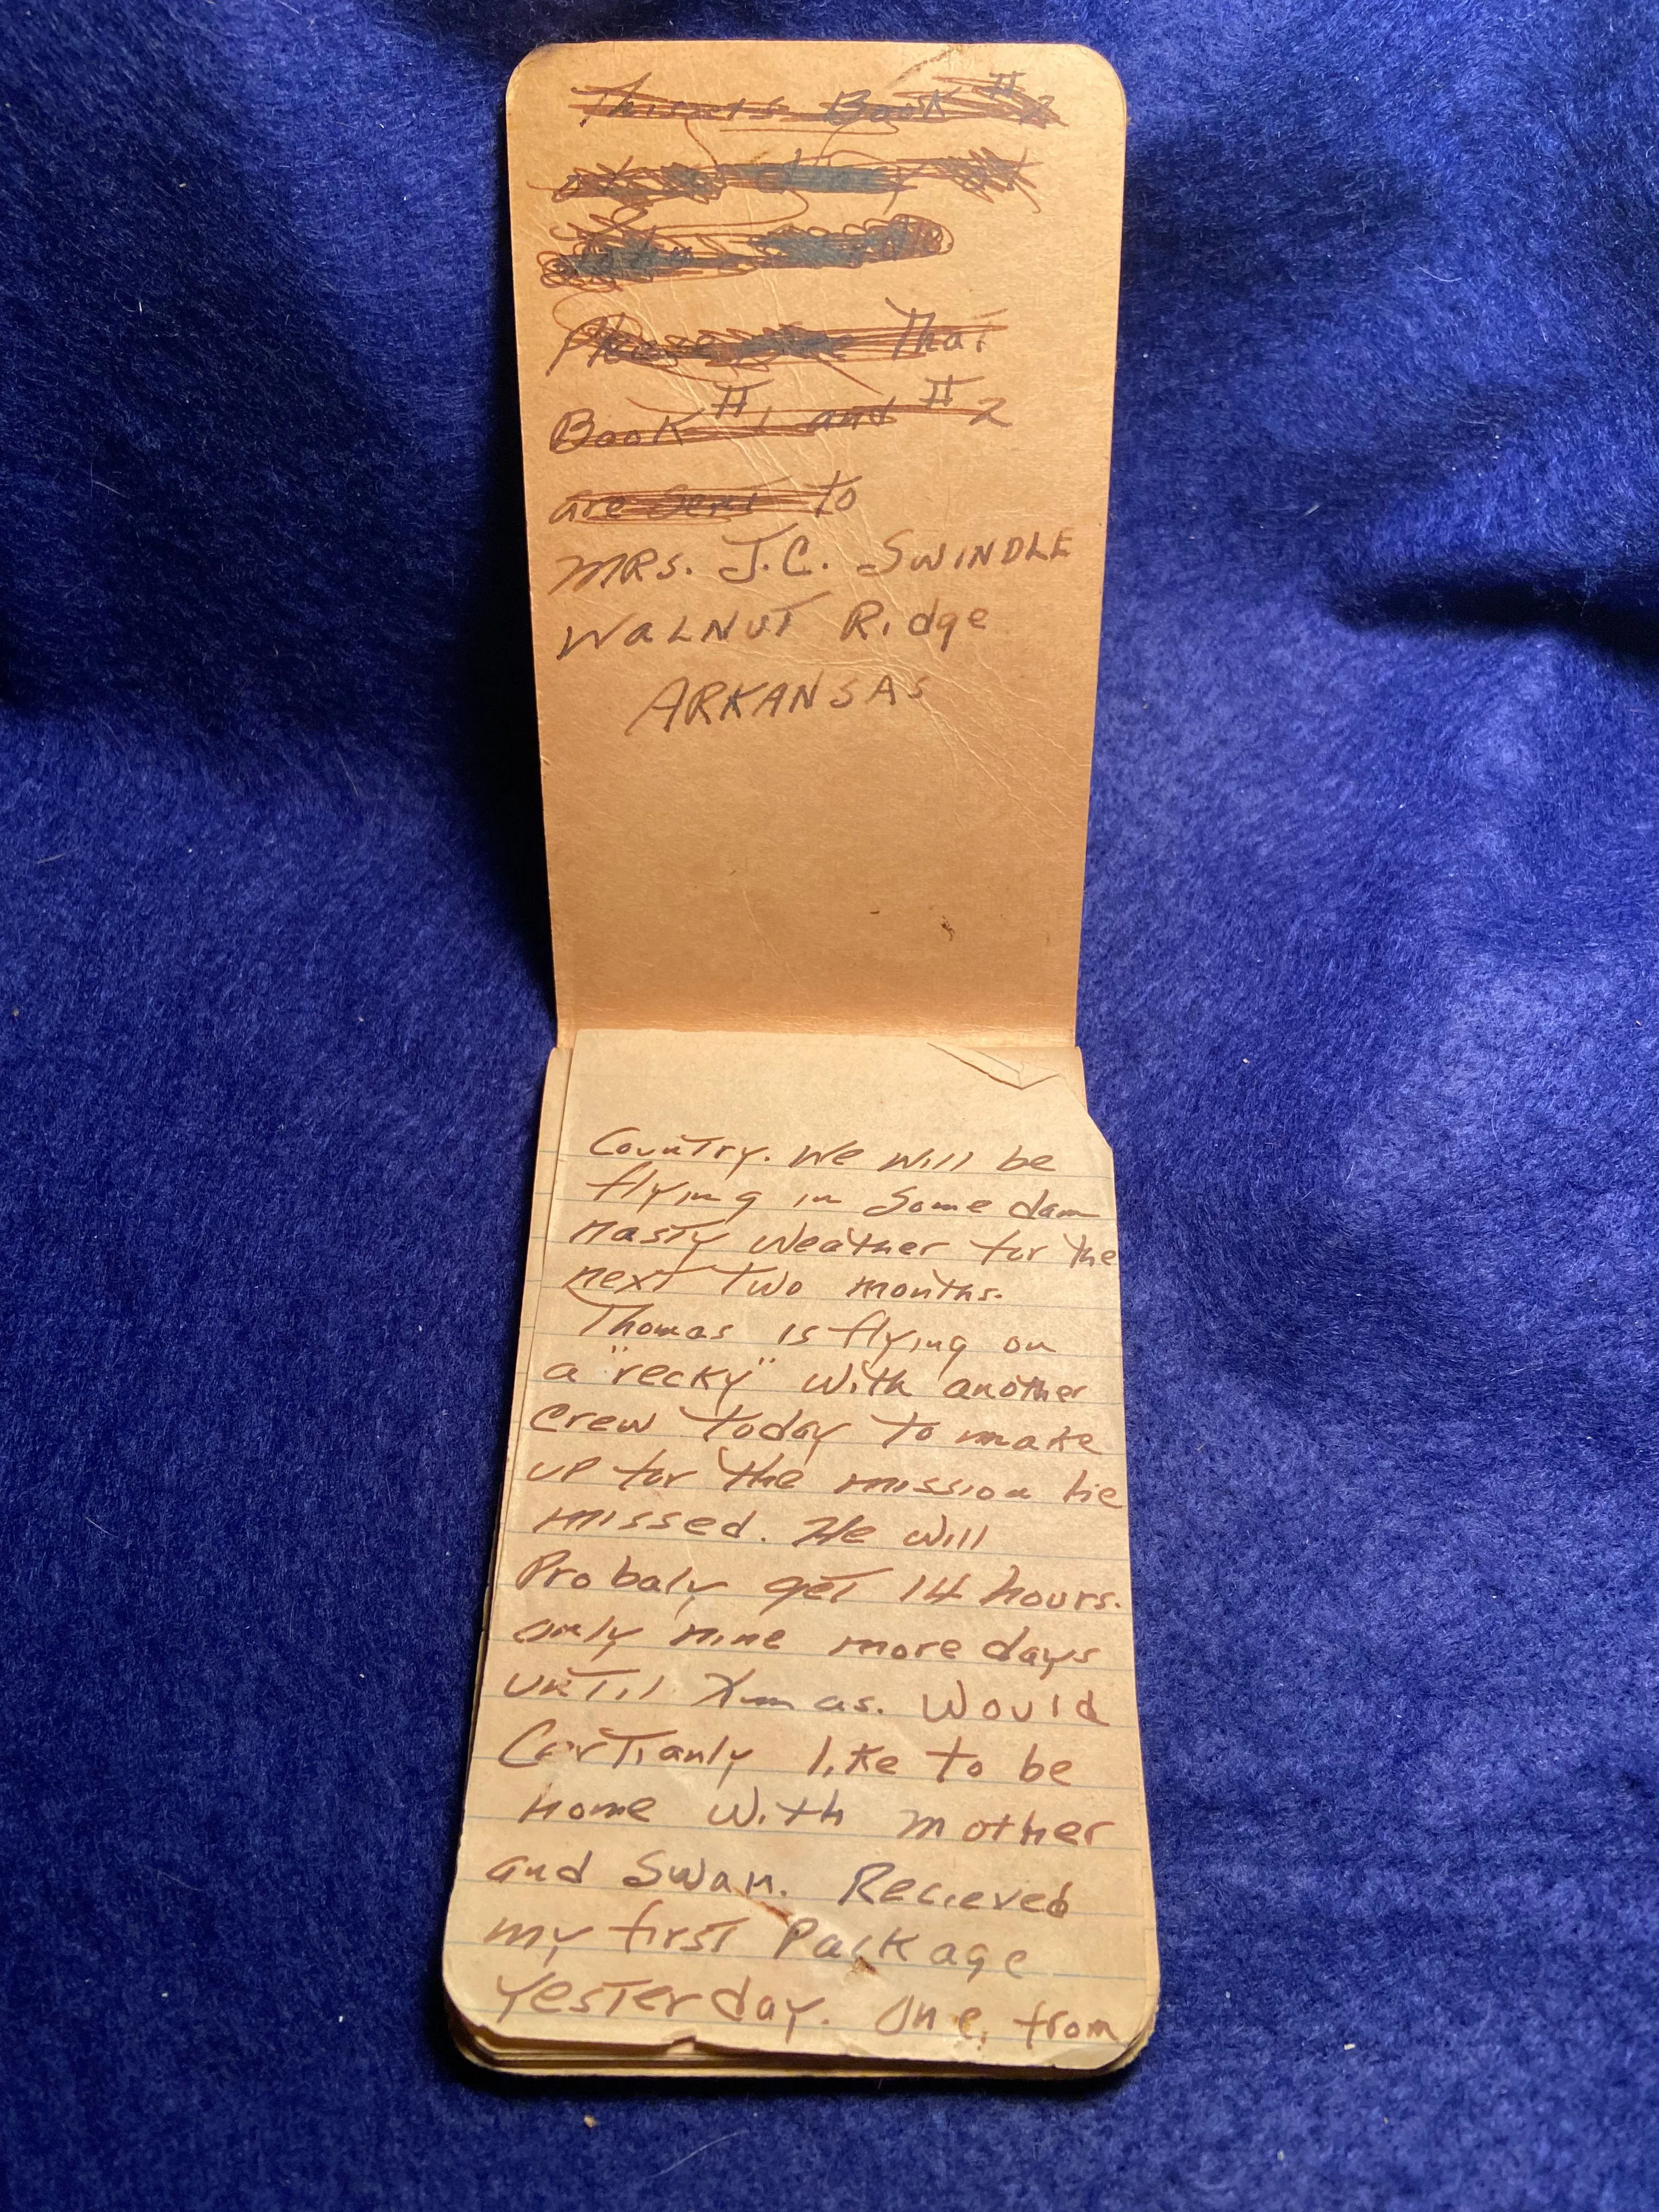 This is Book #2
Please That
Book #1 and #2
are sent to
MRS. J.C. SWINDLE
WALNUT Ridge
ARKANSAS
Country. We will be
flying in some dam
nasty weather for the
next two months.
Thomas is flying on
a "recky" with another
crew today to make
up for the mission he
missed. He will
Probaly get 14 hours.
only nine more days
until Xmas. Would
Certianly like to be
home with mother
and Swan. Recieved
my first Package
yesterday. One, from